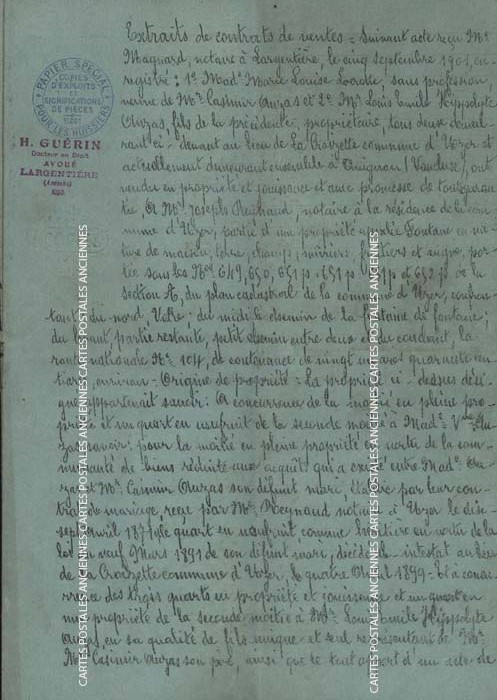 Extraits de contrats de ventes = Suivant acte reçu Me
Maquard, notaire à Largentière, le cinq septembre 1901, en-
registré : 1° Made Marie Louise sans profession
veuve de Mr Casimir Auzas et 2° Mr Louis Emile Hippolyte
Auzas, fils de la précédente, propriétaire, tous deux demeu-
rant ci-devant au lieu de la Croizette commune d'Uzer et
actuellement demeurant ensemble à Avignon (Vaucluse), ont
vendu en propriété et jouissance et avec promesse de toute garan-
tie, à Mr Joseph notaire à la résidence de la com-
mune d'Uzer, partie d'une propriété appelée Fontane en na-
ture de maison, terre, champ, mûriers, fruitiers et por-
tée sous les Nos 649, 650, 651 p. 651 p et 652 p de la
section A, du plan cadastral de la commune d'Uzer, confron-
tant du nord, du midi le chemin de la fontaine de fontane;
du partie restante, petit chemin entre deux et du couchant, la
route nationale No 104, de contenance de vingt ares quarante cen-
tiares environ = Origine de propriété = La propriété ci-dessus dési-
gnée appartenait savoir : à concurrence de la moitié en pleine pro-
priété et un quart en usufruit de la seconde moitié à Made Vve Au-
zas savoir : pour la moitié en pleine propriété en vertu de la com-
munauté de biens réduite aux acquêts qui a existé entre Made Au-
zas et Mr Casimir Auzas son défunt mari, par leur con-
trat de mariage reçu par Me Reynaud notaire à Uzer le dix-
sept avril le quart en usufruit comme héritière en vertu de la
loi du neuf Mars 1891 de son défunt mari, décédé intestat au lieu
de la Croizette commune d'Uzer, le quatre 1899 = Et à concur-
rence des trois quarts en propriété et jouissance et un quart en
nue propriété de la seconde moitié à Mr Louis Emile Hippolyte
Auzas en sa qualité de fils unique et seul représentant de Mr
Casimir Auzas son père, ainsi que le tout appert d'un acte de
PAPIER SPÉCIAL
POUR LES HUISSIERS
COPIES
D'EXPLOITS
ET
SIGNIFICATIONS
DE PIÈCES
H. GUÉRIN
Docteur en Droit
AVOUÉ
LARGENTIÈRE
(Ardèche)
CARTES POSTALES ANCIENNES CARTES POSTALES ANCIENNES CARTES POSTALES ANCIENNES
CARTES POSTALES ANCIENNES CARTES POSTALES ANCIENNES CARTES POSTALES ANCIENNES